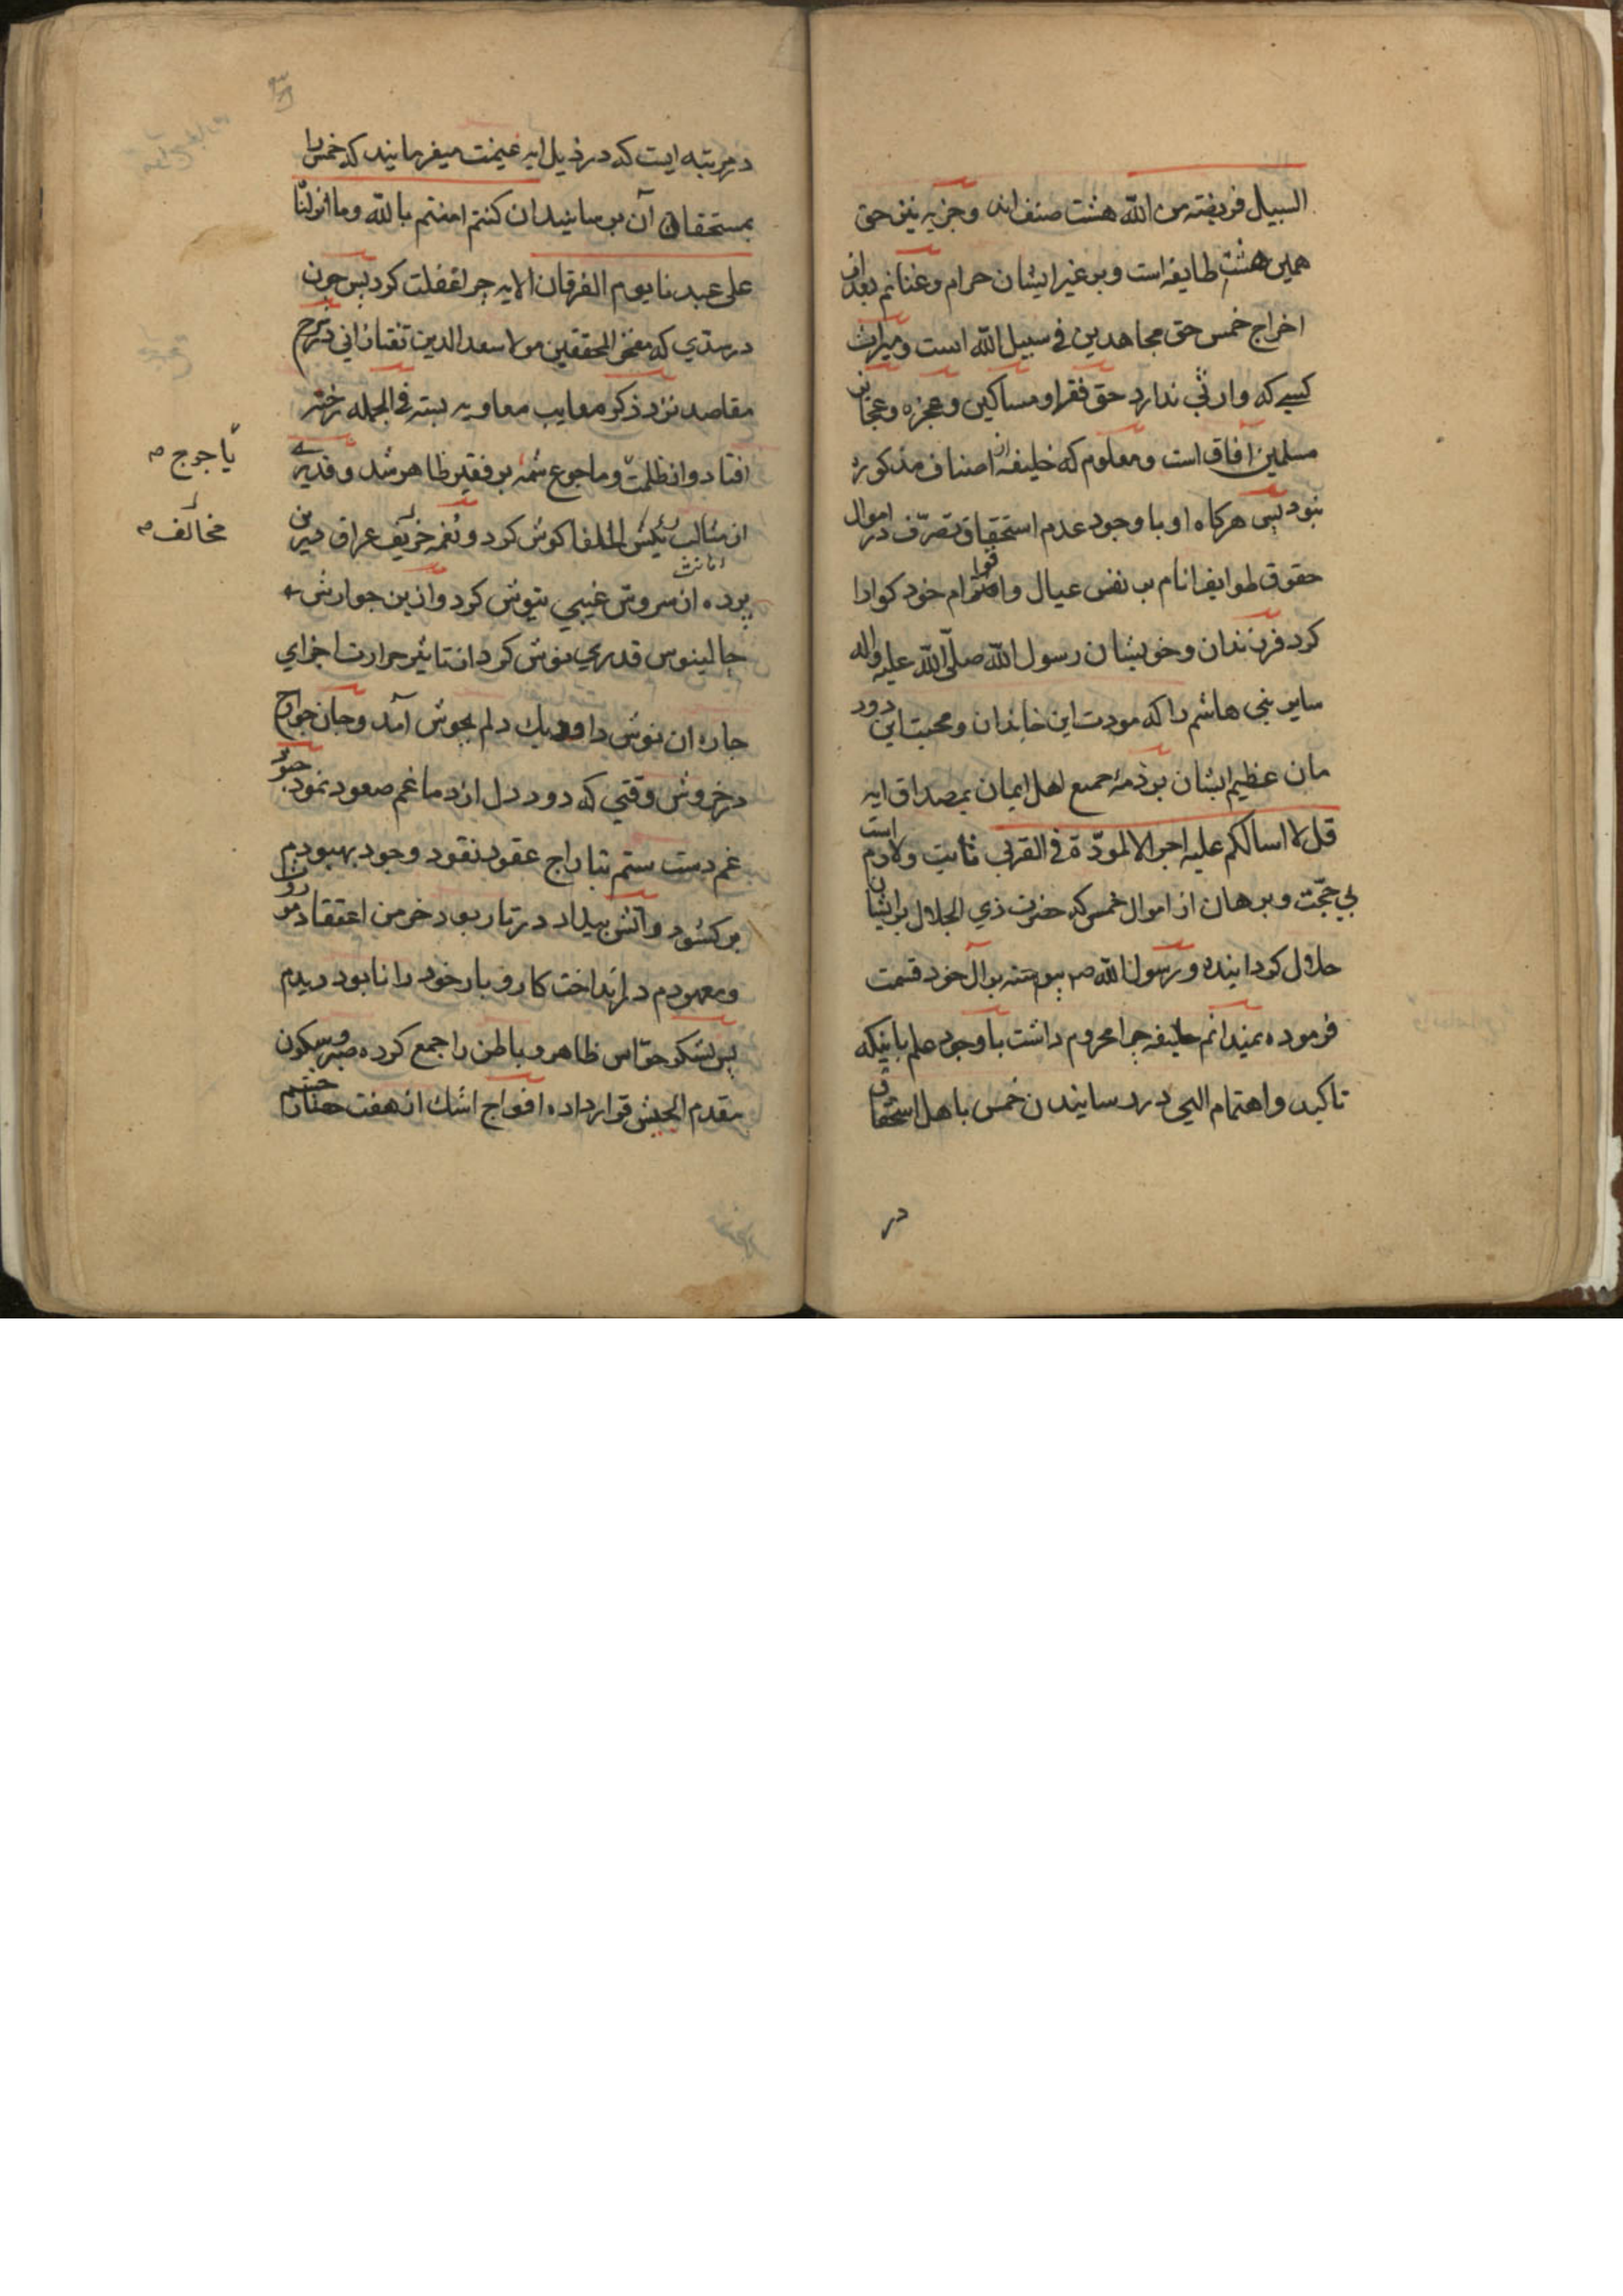 السبیل فریضته من الله هشت صنف اند وجزیه نیز حق
همین هشت طایفه است و بر غیر ایشان حرام و غنائم بعد از
اخراج خمس حق مجاهدین فی سبیل الله است و میراث
کسی که وارثی ندارد حق فقرا و مساکین و عجزه و عجایز
مسلمین آفاق است و معلوم که خلیفه از اصناف مذکوره
نبود پس هرکاه او با وجود عدم استحقاق تصرّف در اموال
حقوق طوایف انام بر نفس عیال و اقوام خود کوارا
کرد فرزندان و خویشان رسول الله صلّی الله علیه واله
سایر بنی هاشم را که مودت این خاندان و محبت این دود
مان عظیم الشان بر ذمهٔ جمیع اهل ایمان بمصداق ایه
قل لا اسالکم علیه اجرا الا المودّة فی القربی ثابت و لازم است
بی حجّت و برهان از اموال خمس که حضرت ذی الجلال بر ایشان
حلال کردانیده و رسول الله ص پیوسته بر آل خود قسمت
فرموده نمیدانم خلیفه چرا محروم داشت با وجود علم باینکه
تاکید و اهتمام الهی در رسانیدن خمس باهل استحقاق
در
در مرتبه ایست که در ذیل ایه غنیمت میفرمایند که خمس را
بمستحقان آن برسانید ان کنتم امنتم بالله وما انزلنا
علی عبدنا یوم الفرقان الایه چرا غفلت کرد پس چون
در سدّی که مفخر المحققین مولا سعد الدین تفتازانی در شرح
مقاصد نزد ذکر معایب معاویه بسته فی الجمله رخنه
افتاد و از ظلمت و ماجوع شمه بر فقیر ظاهر شد و قدری
از مثالب رئیس الخلفا کوش کرد و نغمه خریف عراق درین
پرده از سروش غیبی نیوش کرد و ازین جوارش
جالینوس قدری نوش کرد از تاثیر حرارت اجزای
چاره ان نوش دارو دیك دلم بجوش آمد و جان جوارح
در خروش وقتی که دود دل از دماغم صعود نمود جنود
غم دست ستم بتاراج عقود نقود وجود بهبودم
برکشود و آتش بیداد در تار پود خرمن اعتقاد موروث
و معهودم در انداخت کار و بار خود را نابود دیدم
پس لشکر حوّاس ظاهر و باطن را جمع کرده صبر و سکون
مقدم الجیش قرار داده افواج اشك از هفت
یاجوج ص
مخالف ص